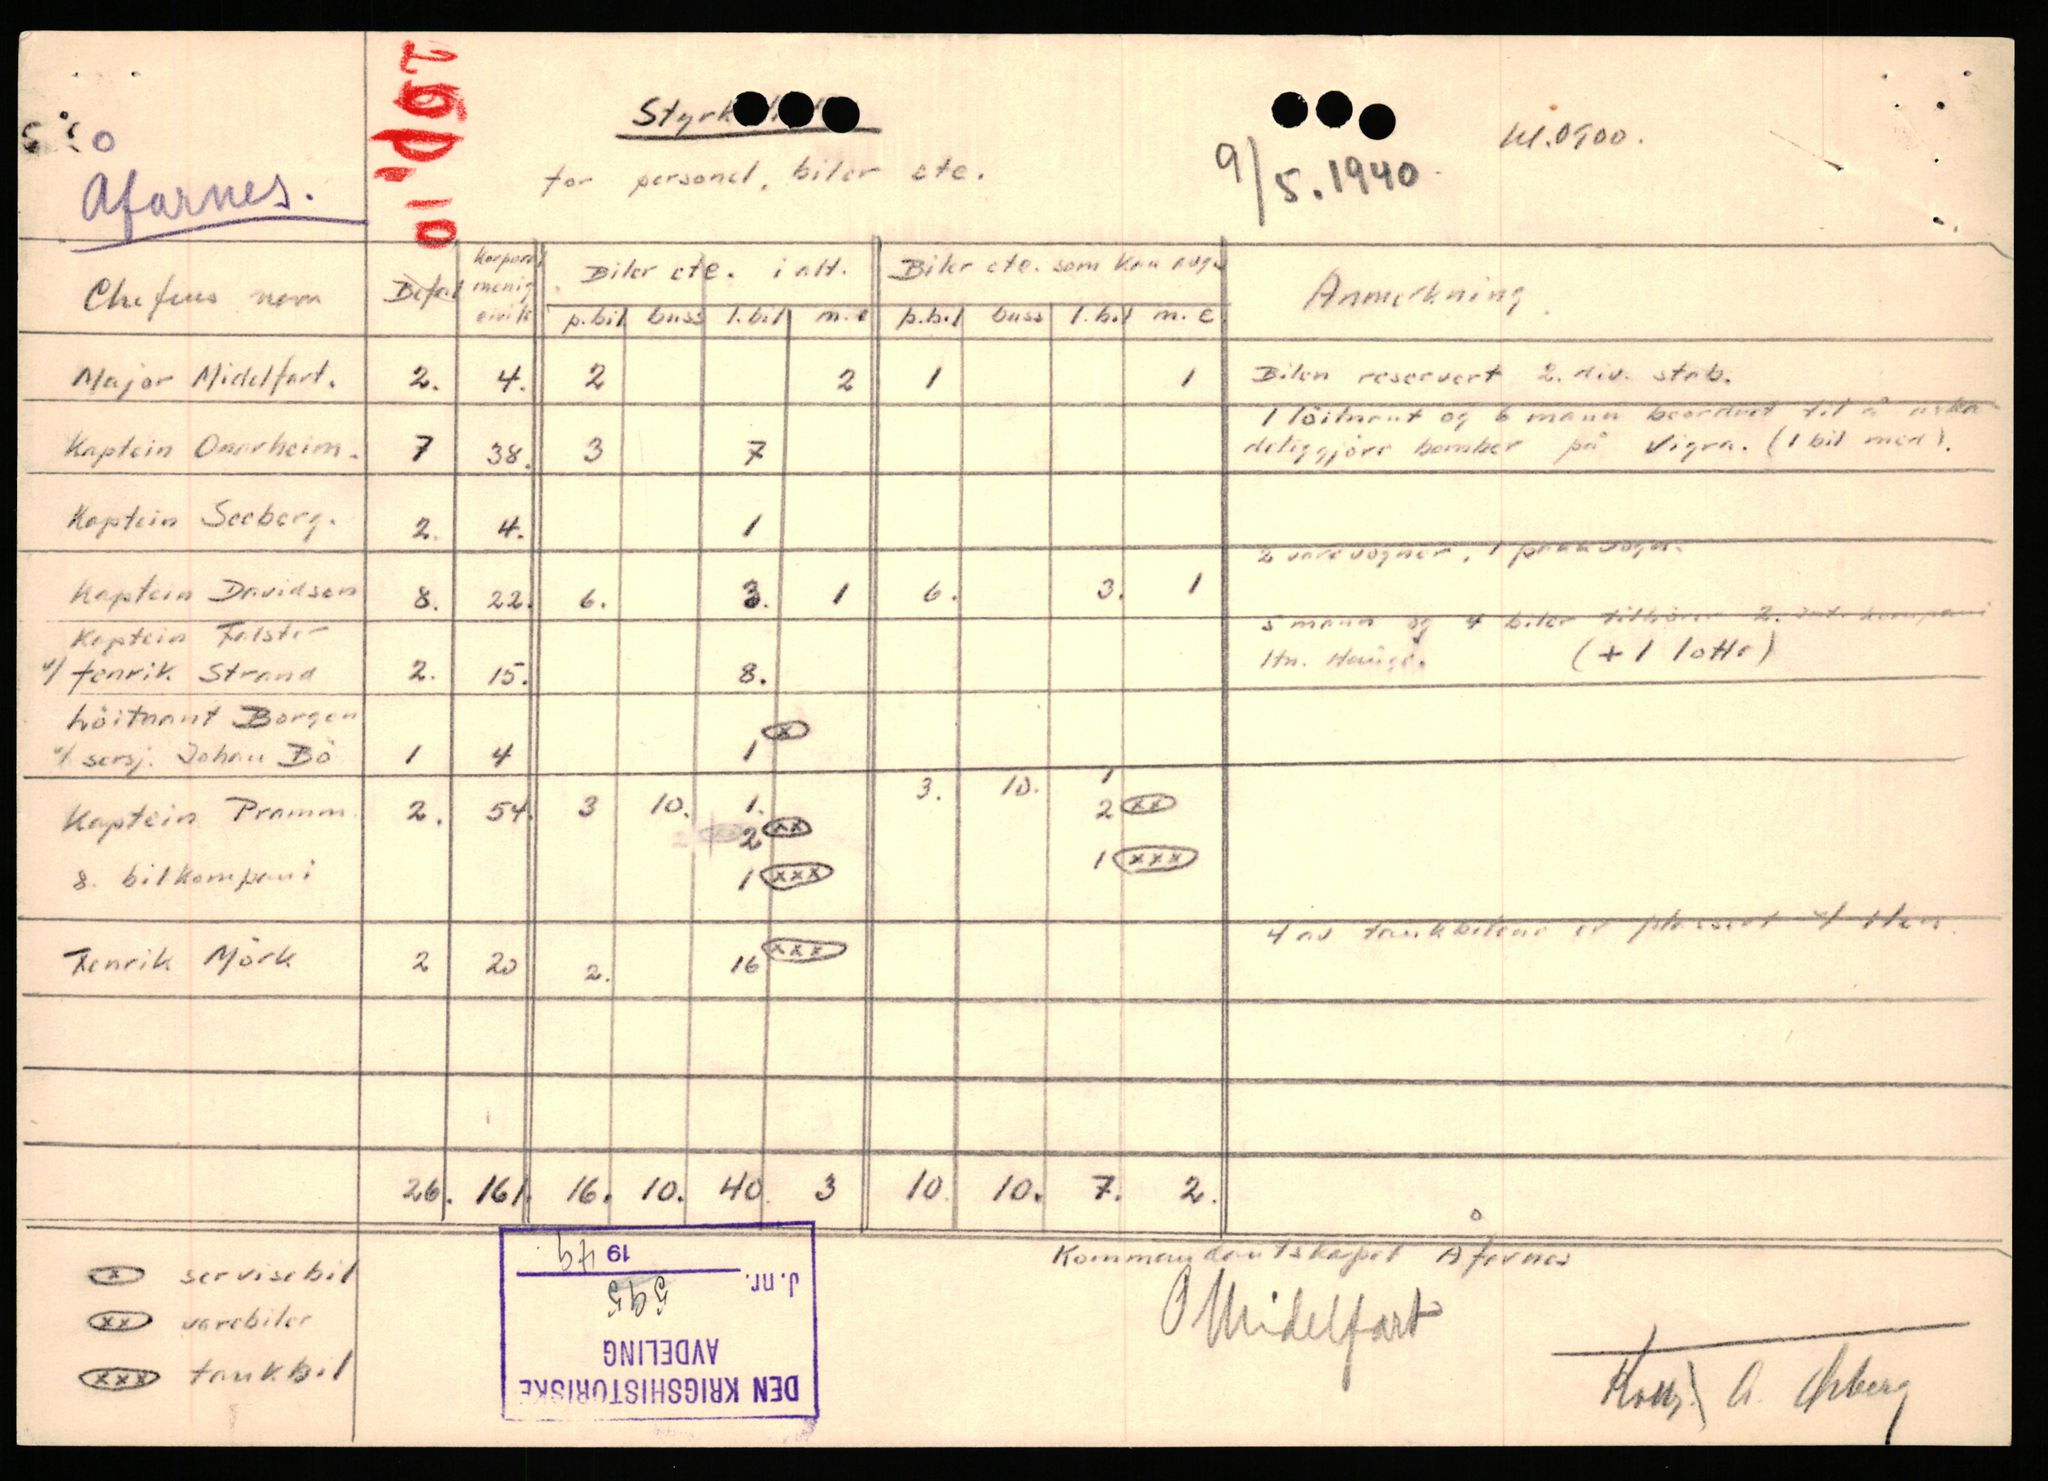 Afarnes.
for personel, biler etc.
9/5.1940
kl.0900.
Chefens navn Befal menig civile Biler etc. i alt. Biler etc. som kan Anmerkning
p.bil buss l.bil m.c p.bil buss l.bil m.c
Major Midelfart. 2. 4. 2 2 1 1 Bilen reservert 2. div. stab.
1 löitnant og 6 mann beordret til å uska-
Kaptein Onarheim. 7 38. 3 7 deliggjöre bomber på Vigra. (1 bil med).
Kaptein Seeberg. 2. 4. 1
2 varevogner, 1
Kaptein Davidsen 8. 22. 6. 3. 1 6. 3. 1
Kaptein Falster 5 mann og 4 biler tilhörer 2. int. kompani
v/ fenrik Strand 2. 15. 8. ltn. Hauge. (+ 1 lotte)
Löitnant Borgen
v/ sersj. Johan Bö 1 4 1 x
Kaptein Pramm 2. 54. 3 10. 1. 3. 10. 1
2 xx 2 xx
8. bilkompani 1 xxx 1 xxx
4 av tankbilene er plassert
Fenrik Mörk 2 20 2. 16 xxx
26. 161. 16. 10. 40. 3 10 10. 7. 2.
x servisebil
xx varebiler
xxx tankbil
Kommandantskapet Åfarnes
O Midelfart
DEN KRIGSHISTORISKE
AVDELING
J.nr. 595
1949